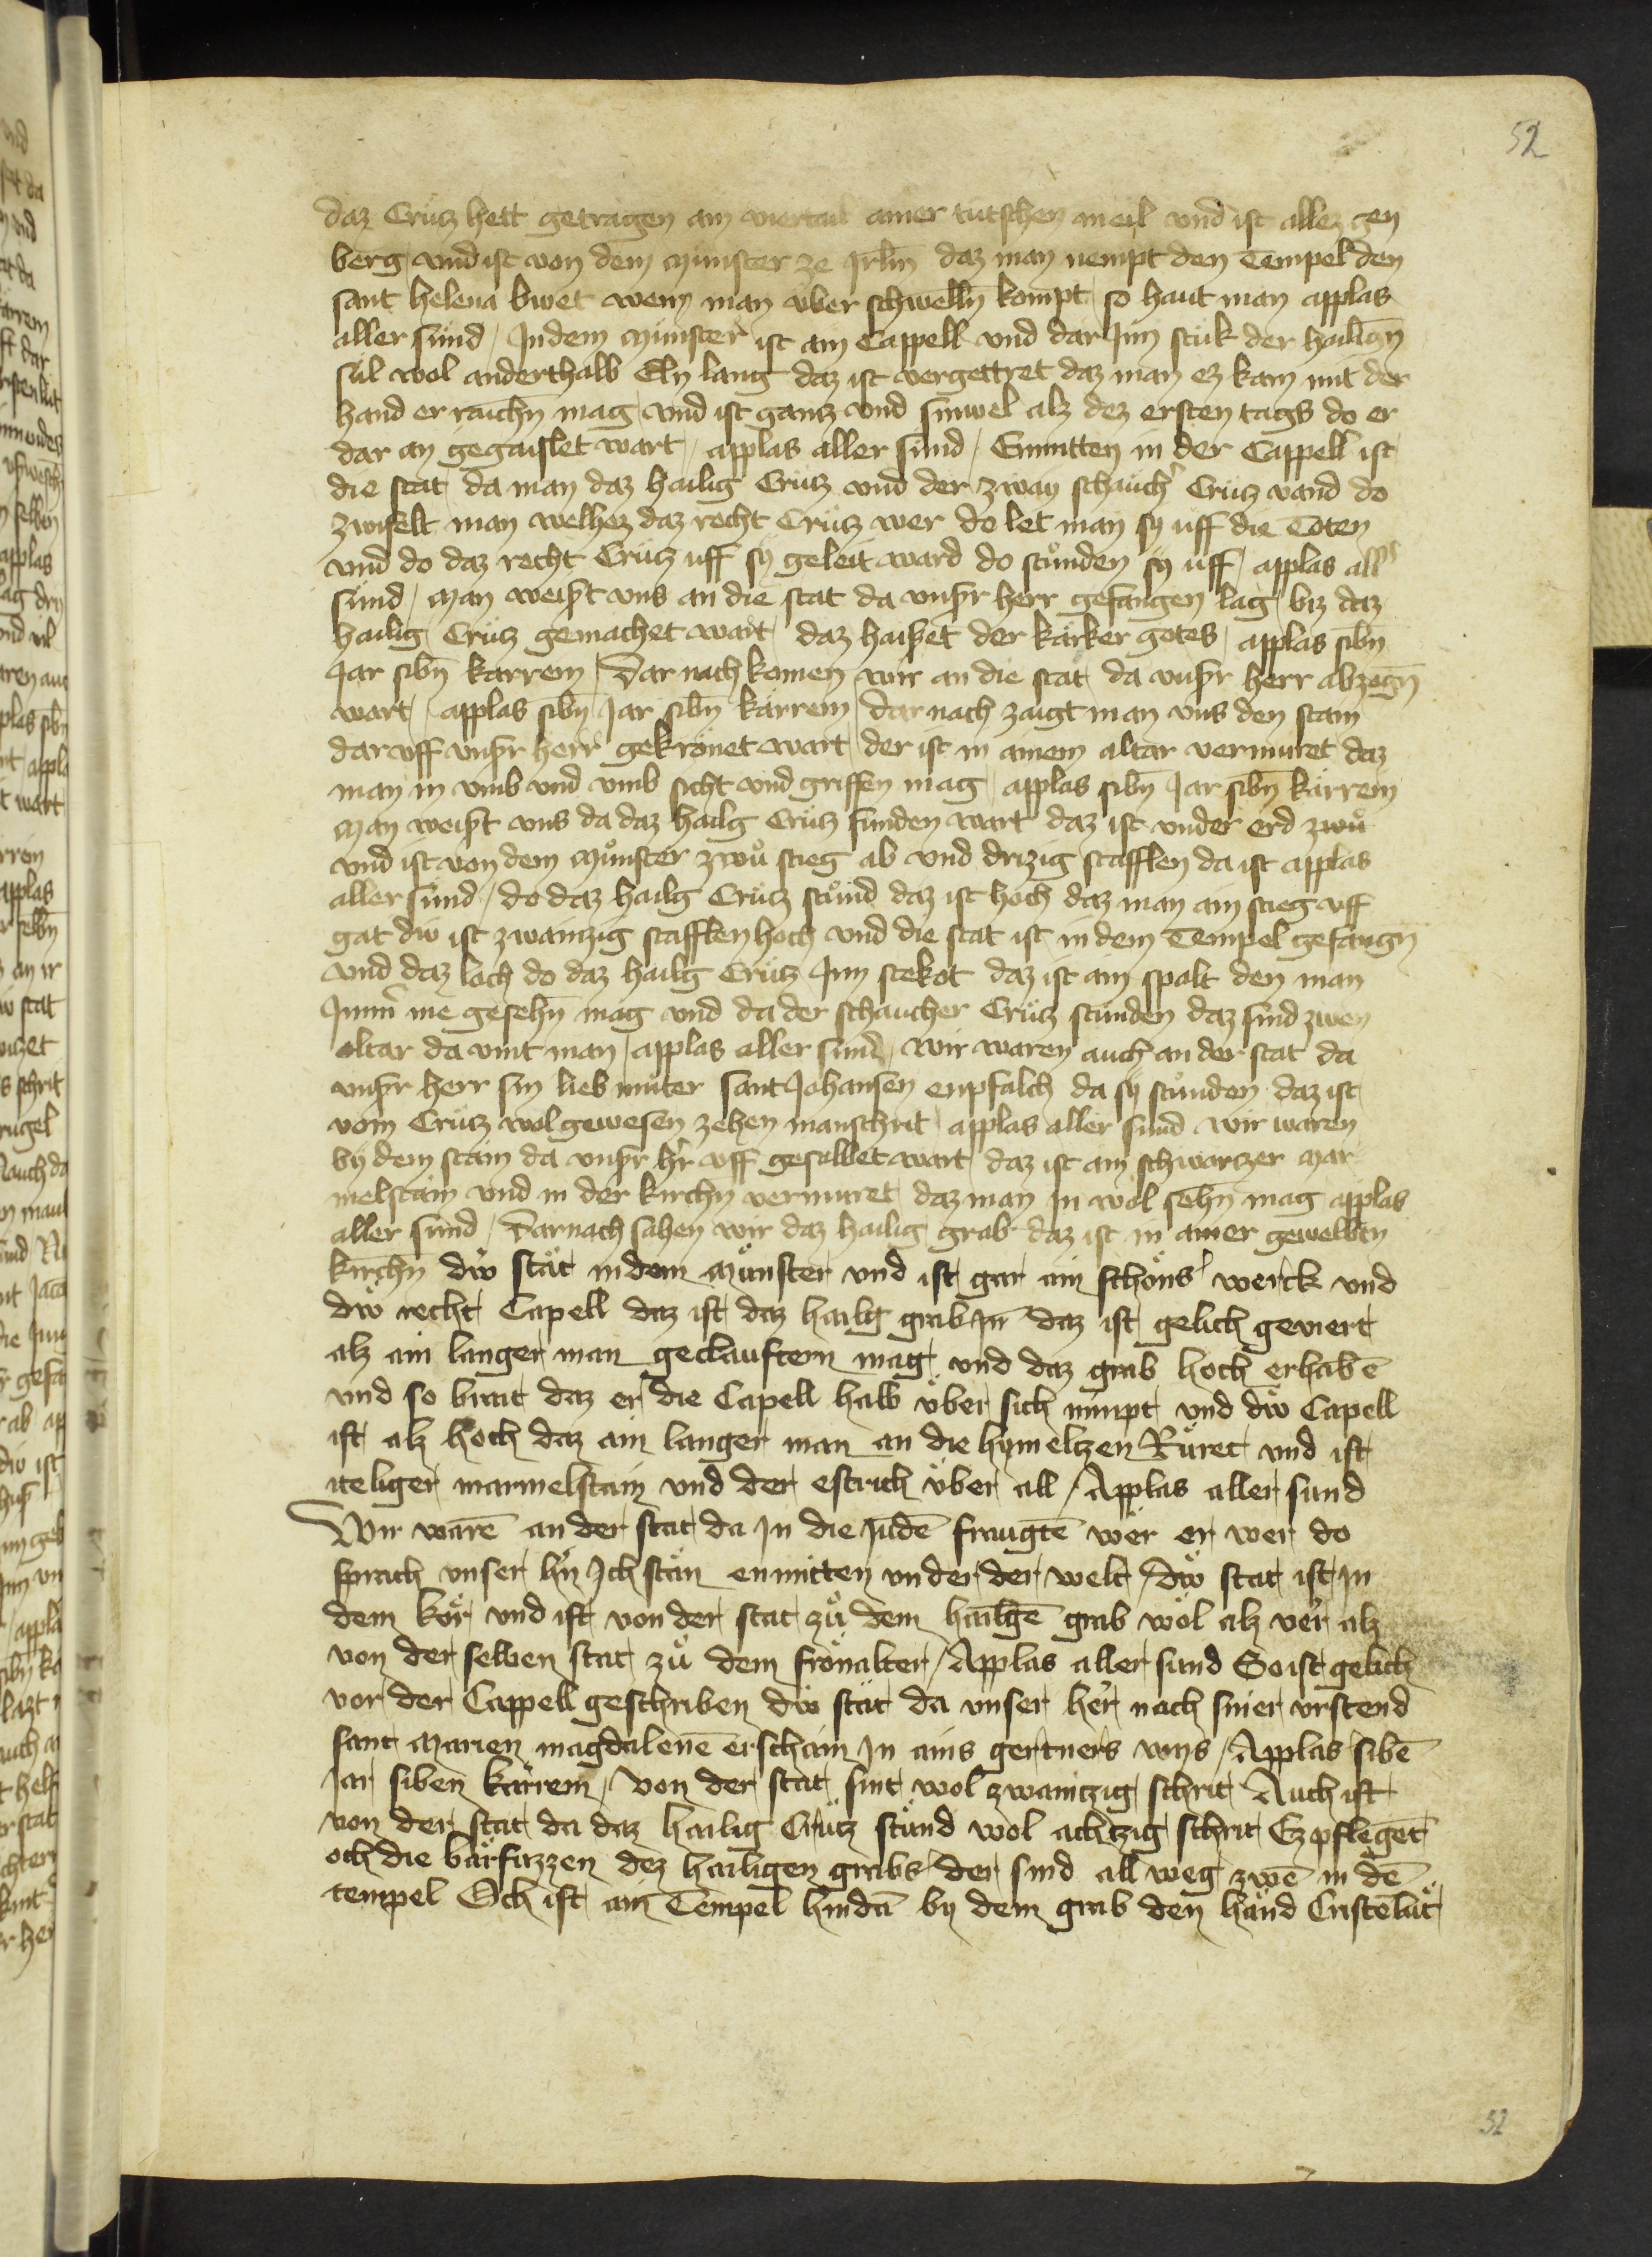 52
daz Crütz hett getragen ain viertail ainer tütschen meil vnd ist allez gen
berg vnd ist von dem münster ze Jrl̄m daz man nempt den Tempel den
sant helena bwet wenn man über schwelln̄ kompt so haut man applas
aller sünd / Jn dem münster ist ain Cappell vnd dar Jnn stük der hailign̄
sül wol anderthalb Eln lang daz ist vergettret daz man ez kam mit der
hand er raichn̄ mag vnd ist gantz vnd sinwel alz dez ersten tags do er
dar an gegaislet wart / applas aller sünd / Enmitten in der Cappell ist
die stat da man daz hailig Crütz vnd der zway schauch̓ Crütz vand do
zwifelt man welhez daz recht Crütz wer do let man sy uff die Toten
vnd do daz recht Crütz uff sy geleit ward do stůnden sy uff / applas all̓
sünd / man weist vns an die stat da vnsr̄ herr gefangen lag biz daz
hailig Crütz gemachet wart daz haisset der kärker gotes / applas sibn̄
Jar sibn̄ karrem / Dar nach komen wir an die stat da vnsr̄ herr abzogn̄
wart / applas sibn̄ Jar sibn̄ kärrem / dar nach zaigt man vns den stain
dar uff vnsr̄ herr gekrönet wart der ist in ainem altar vermuret daz
man in vmb vnd vmb sicht vnd griffen mag / applas sibn̄ Jar sibn̄ kärrem
man weist vns da daz hailg Crütz funden wart daz ist vnder erd zwů
vnd ist von dem münster zwů stieg ab vnd drizig stafflen da ist applas
aller sünd / do daz hailg Crütz stůnd daz ist hoch daz man ain stieg uff
gat diw ist zwaintzig stafflen hoch vnd die stat ist in dem Tempel gefangn̄
vnd daz loch do daz hailg Crütz Jnn stekot daz ist ain spalt den man
Jmm̄ me gesehn̄ mag vnd da der schaucher Crütz stunden daz sind zwen
altar da vint man / applas aller sünd / wir waren auch an der stat da
vnsr̄ herr sin lieb muter sant Johansen enpfalch da sy stůnden daz ist
vom Crütz wol gewesen zehen manschrit / applas aller sünd wir waren
by dem stain da vnsr̄ hr̄ uff gesalbet wart daz ist ain schwartzer mar
melstain vnd in der kirchn̄ vermuret daz man in wol sehn̄ mag applas
aller sünd / Darnach sahen wir daz hailig grab daz ist in ainer gewelbtn
kirchn̄ diw stät in dem münster vnd ist gar ain schöns werck vnd
diw recht Capell daz ist daz hailg grab Jn̄ daz ist gelich geviert
alz ain langer man geclauftern mag vnd daz grab hoch erhabē
vnd so brait daz er die Capell halb über sich nimpt vnd diw Capell
ist alz hoch daz ain langer man an die hymeltzen Rüret vnd ist
iteliger marmelstain vnd der estrich über all / Applas aller sünd
Wir warē an der stat da Jn die Judē fraugtē wer er wer do
sprach vnser hr̄ Jch stän enmitten vnder der welt / diw stat ist Jn
dem kör vnd ist von der stat zů dem hailgē grab wol alz ver alz
von der selben stat zů dem fronalter / Applas aller sünd So ist gelich
vor der Cappell geschriben diw stät da vnser her nach siner vrstend
sant marien magdalenē erschain Jn ains gertners wys / Applas sibē
Jar siben kärrem / von der stat sint wol zwaintzig schrit Auch ist
von der stat da daz hailig Crütz stůnd wol achtzig schrit Ez pflegēt
och die barfuzzen dez hailigen grabs der sind all weg zwē in dē
tempel Och ist ain Tempel hindā by dem grab den händ Cristēlüt
52